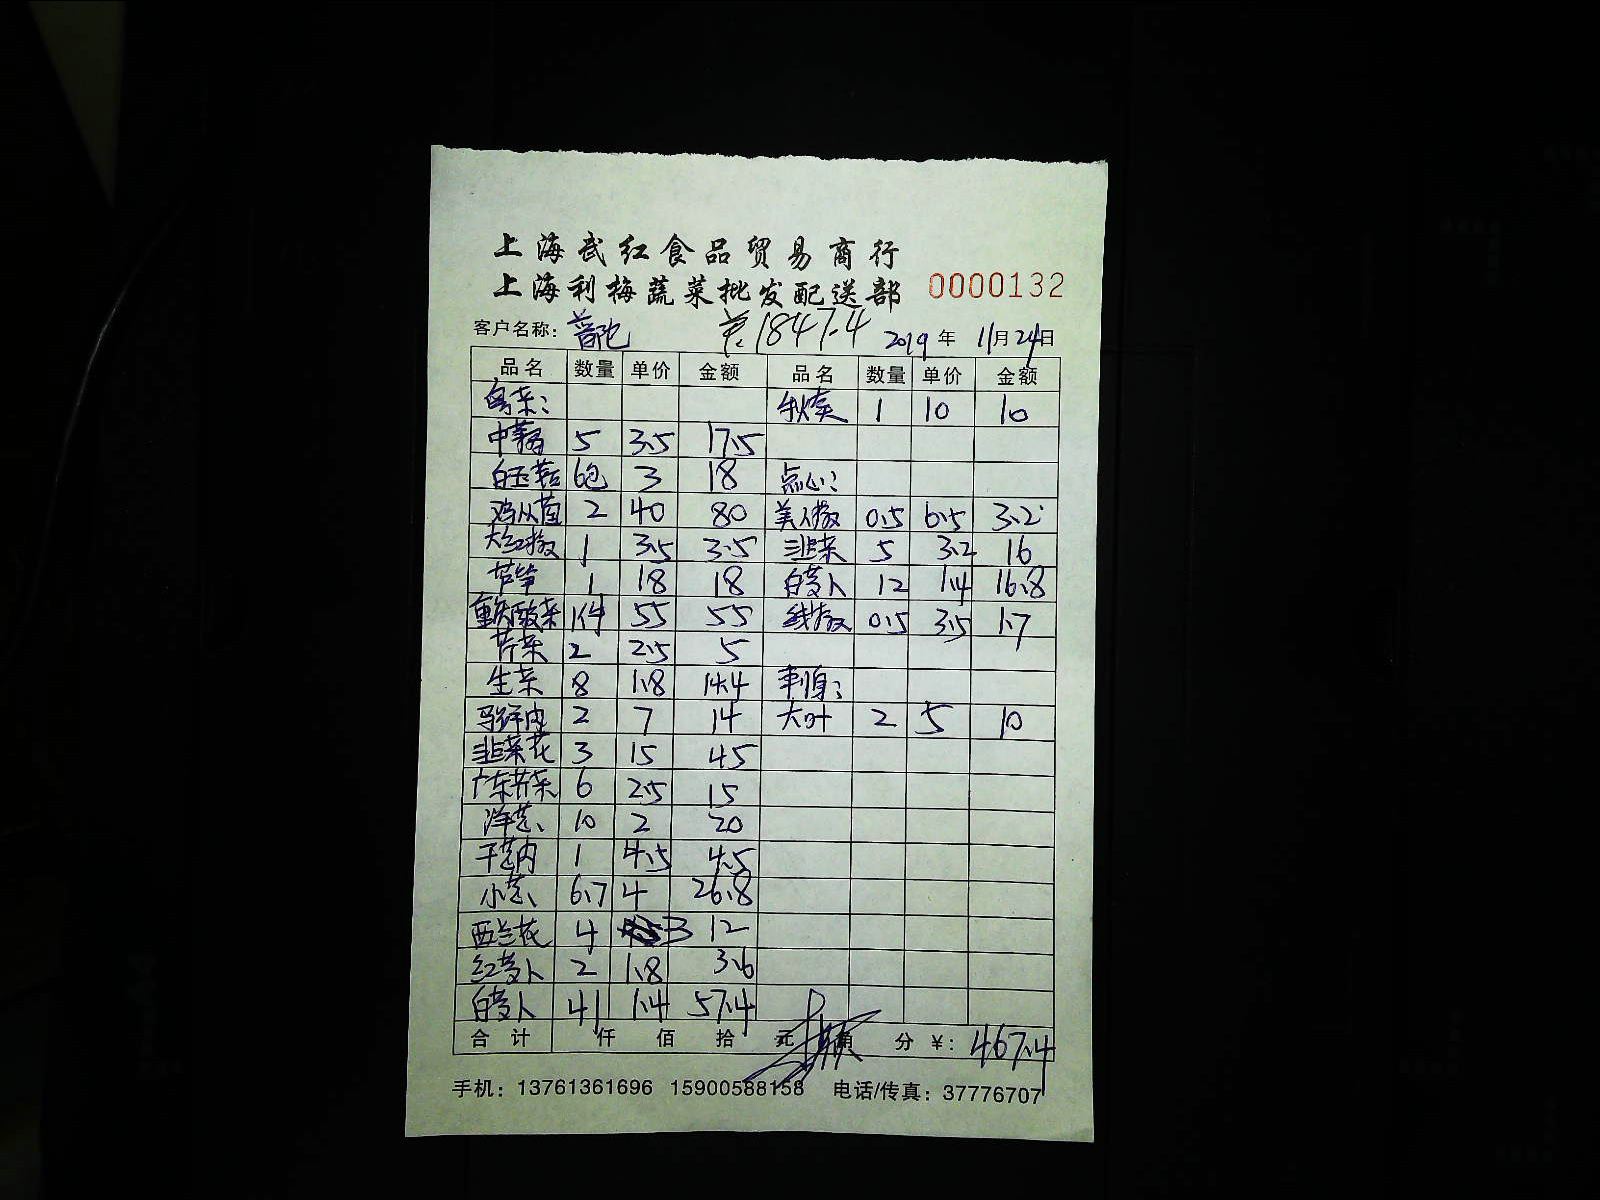 上海武红食品贸易商行
上海利梅蔬菜批发配送部 0000132
客户名称: 1847.4 2019年 11月24日
品名 数量 单价 金额 品名 数量 单价 金额
粤菜: 秋葵 1 10 10
中藕 5 3.5 17.5
白玉菇 6包 3 18 点心:
鸡从菌 2 40 80 美人椒 0.5 6.5 3.2
大红椒 1 3.5 3.5 韭菜 5 3.2 16
芦笋 1 18 18 白萝卜 12 1.4 16.8
重庆酸菜 1件 55 55 线椒 0.5 3.5 1.7
芹菜 2 2.5 5
生菜 8 1.8 14.4 刺身:
马蹄肉 2 7 14 大叶 2 5 10
韭菜花 3 15 45
广东芥菜 6 2.5 15
洋芋 10 2 20
干芋肉 1 4.5 4.5
小芋 6.7 4 26.8
西兰花 4 3 12
红萝卜 2 1.8 3.6
白萝卜 41 1.4 57.4
合计 仟 佰 拾 元 角 分 ¥: 467.4
手机: 13761361696 15900588158 电话/传真: 37776707